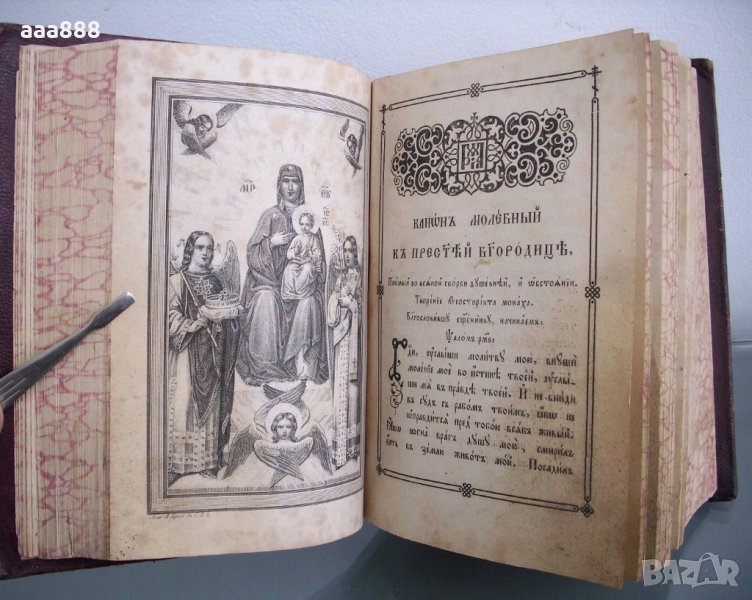 aaa888
МР ѲУ
ІС ХС
Канѡ́нъ моле́бный
къ прест҃ѣ́й бг҃оро́дицѣ,
Пое́мый во всѧ́кой ско́рби дꙋше́внѣй, и҆ ѡ҆бстоѧ́нїи.
Творе́нїе Ѳеостирі́кта мона́ха.
Бл҃гослови́вшꙋ сщ҃е́нникꙋ, начина́емъ,
Ѱало́мъ рм҃в:
Гдⷭ҇и, ᲂу҆слы́ши моли́твꙋ мою̀, внꙋшѝ
моле́нїе моѐ во и҆́стинѣ твое́й, ᲂу҆слы́-
ши мѧ̀ въ пра́вдѣ твое́й. И҆ не вни́ди
въ сꙋ́дъ съ рабо́мъ твои́мъ, ꙗ҆́кѡ не
ᲂу҆правди́тсѧ пред̾ тобо́ю всѧ́къ живы́й:
Ꙗ҆́кѡ погна̀ вра́гъ дꙋ́шꙋ мою̀, смири́лъ
є҆́сть въ зе́млю живо́тъ мо́й. Посади́лъ
BAZAR